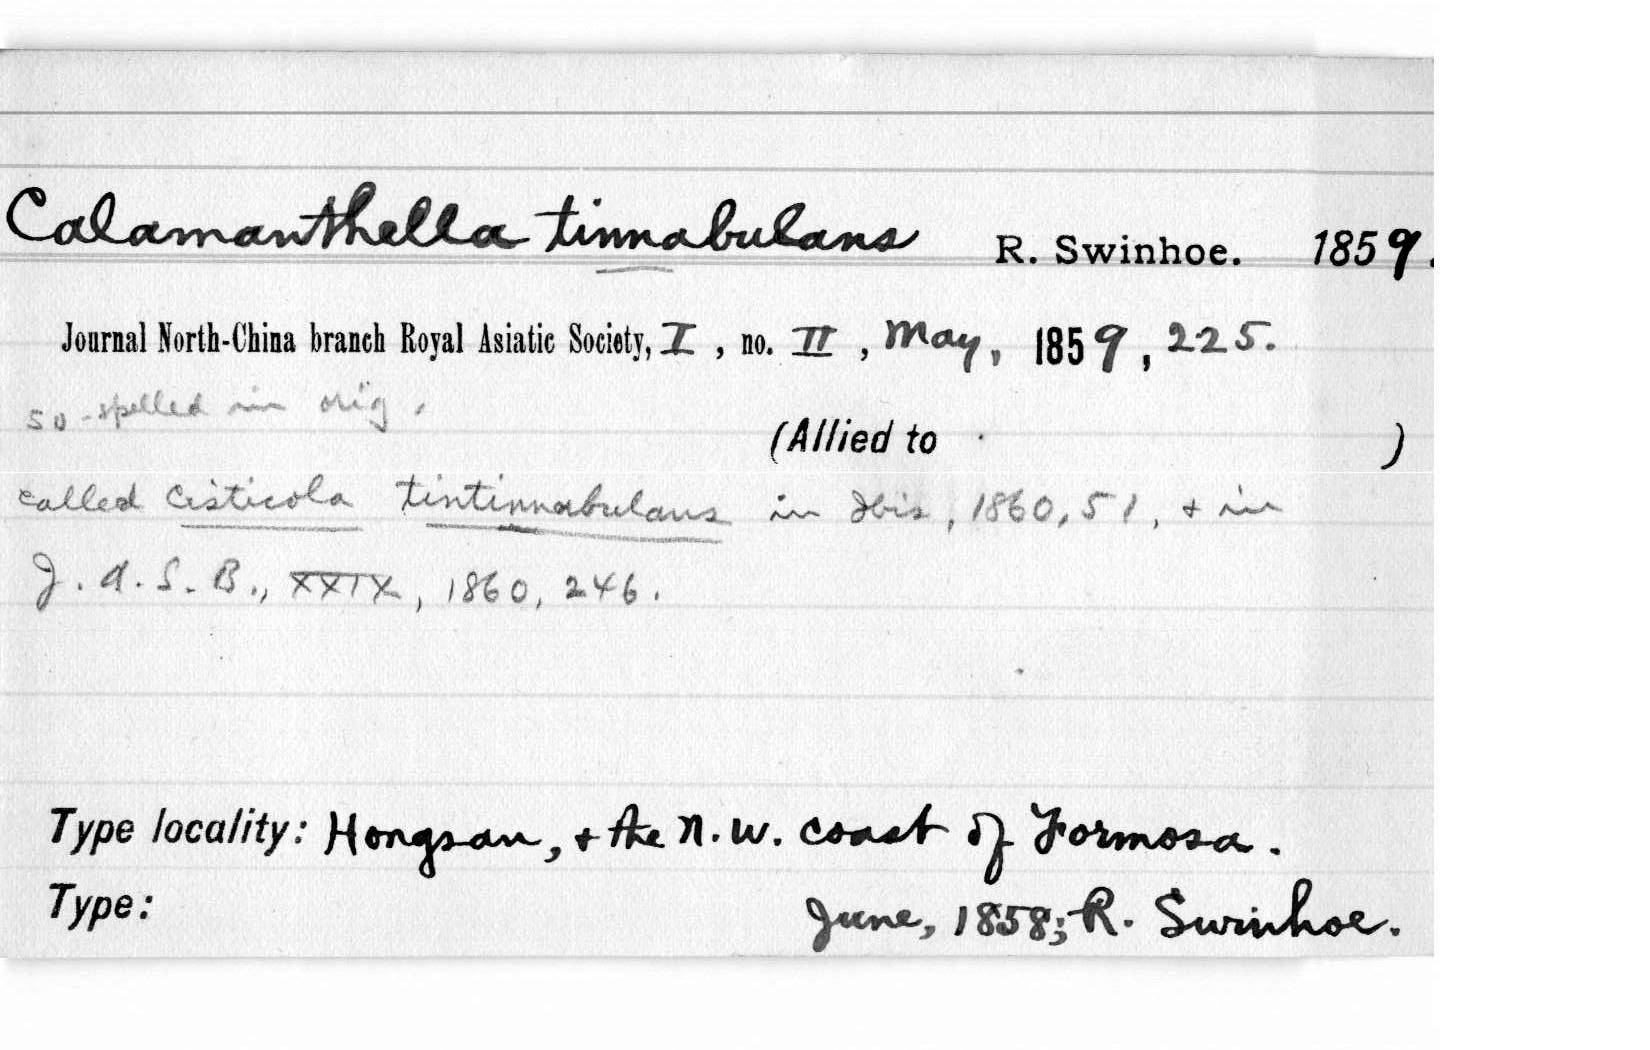 Calamanthella tinnabulans R. Swinhoe. 1859.
Journal North-China branch Royal Asiatic Society, I, no. II, May, 1859, 225.
so-spelled in orig.
(Allied to )
called Cisticola tintinnabulans in Ibis, 1860, 51, + in
J. A. S. B., XXIX, 1860, 246.
Type locality: Hongsan, + the N.W. coast of Formosa.
Type: June, 1858; R. Swinhoe.